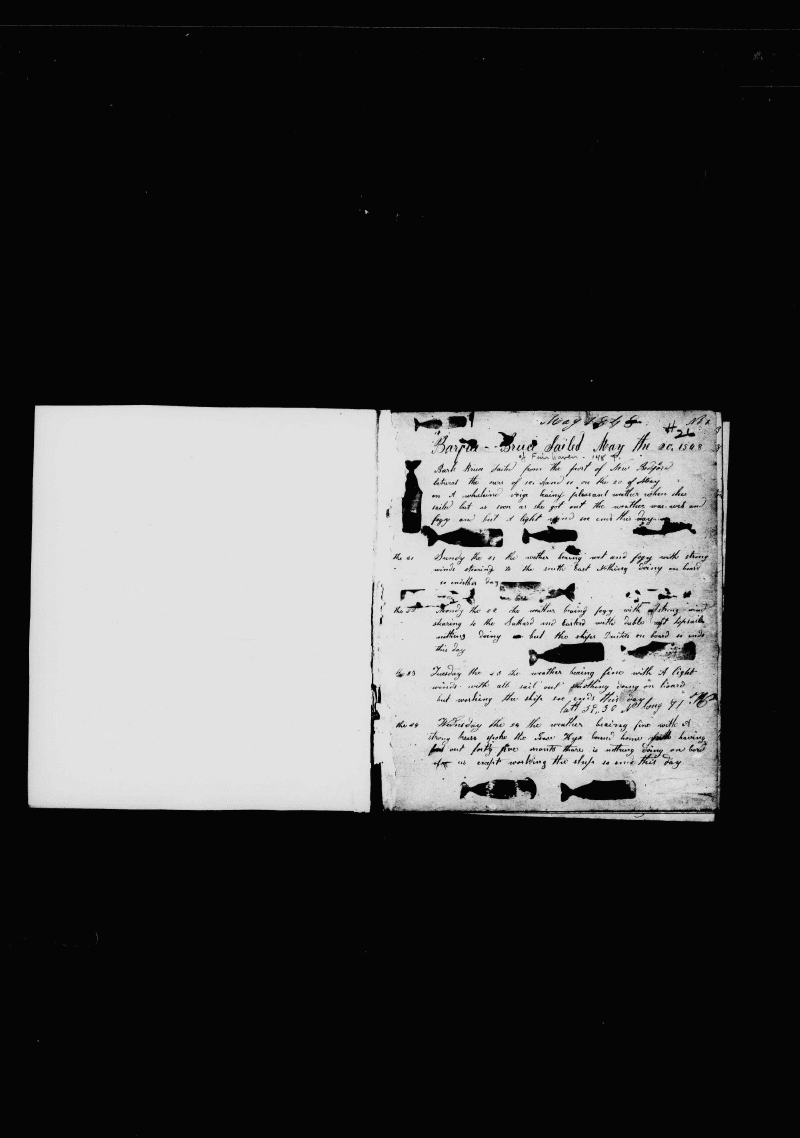 May 1848 No 1
# 26
Barque - Bruce Sailed May the 20. 1848
of Fairhaven - 148 T.
Bark Bruce Sailed from the port of New Bedford
betwext the ours of 10. and 11 on the 20 of May
on A whaleing voige being pleasant wether when she
sailed but as soon as she got out the weather was wet and
fogy and but A light wind soe ends this day
the 21 Sunday the 21 the wether beaing wet and fogy with strong
winds stearing to the south East Nothing doing on board
so another day
the 22 Mondy the 22 the weather beaing fogy with A strong wind
stearing to the Suthard and Easterd with duble reft topsails
nothing doing but the ships Duities on board so ends
this day
the 23 Tuesday the 23 the weather beaing fine with A light
winds with all sail out nothing doing on board
but working the ship soe ends this day
Latt 38.. 30 N Long 71
the 24 Wednesday the 24 the weather beaing fine with A
strong breas spoke the home bound having
out forty five months thare is nothing doing on bord
of us exept working the ship so ends this day